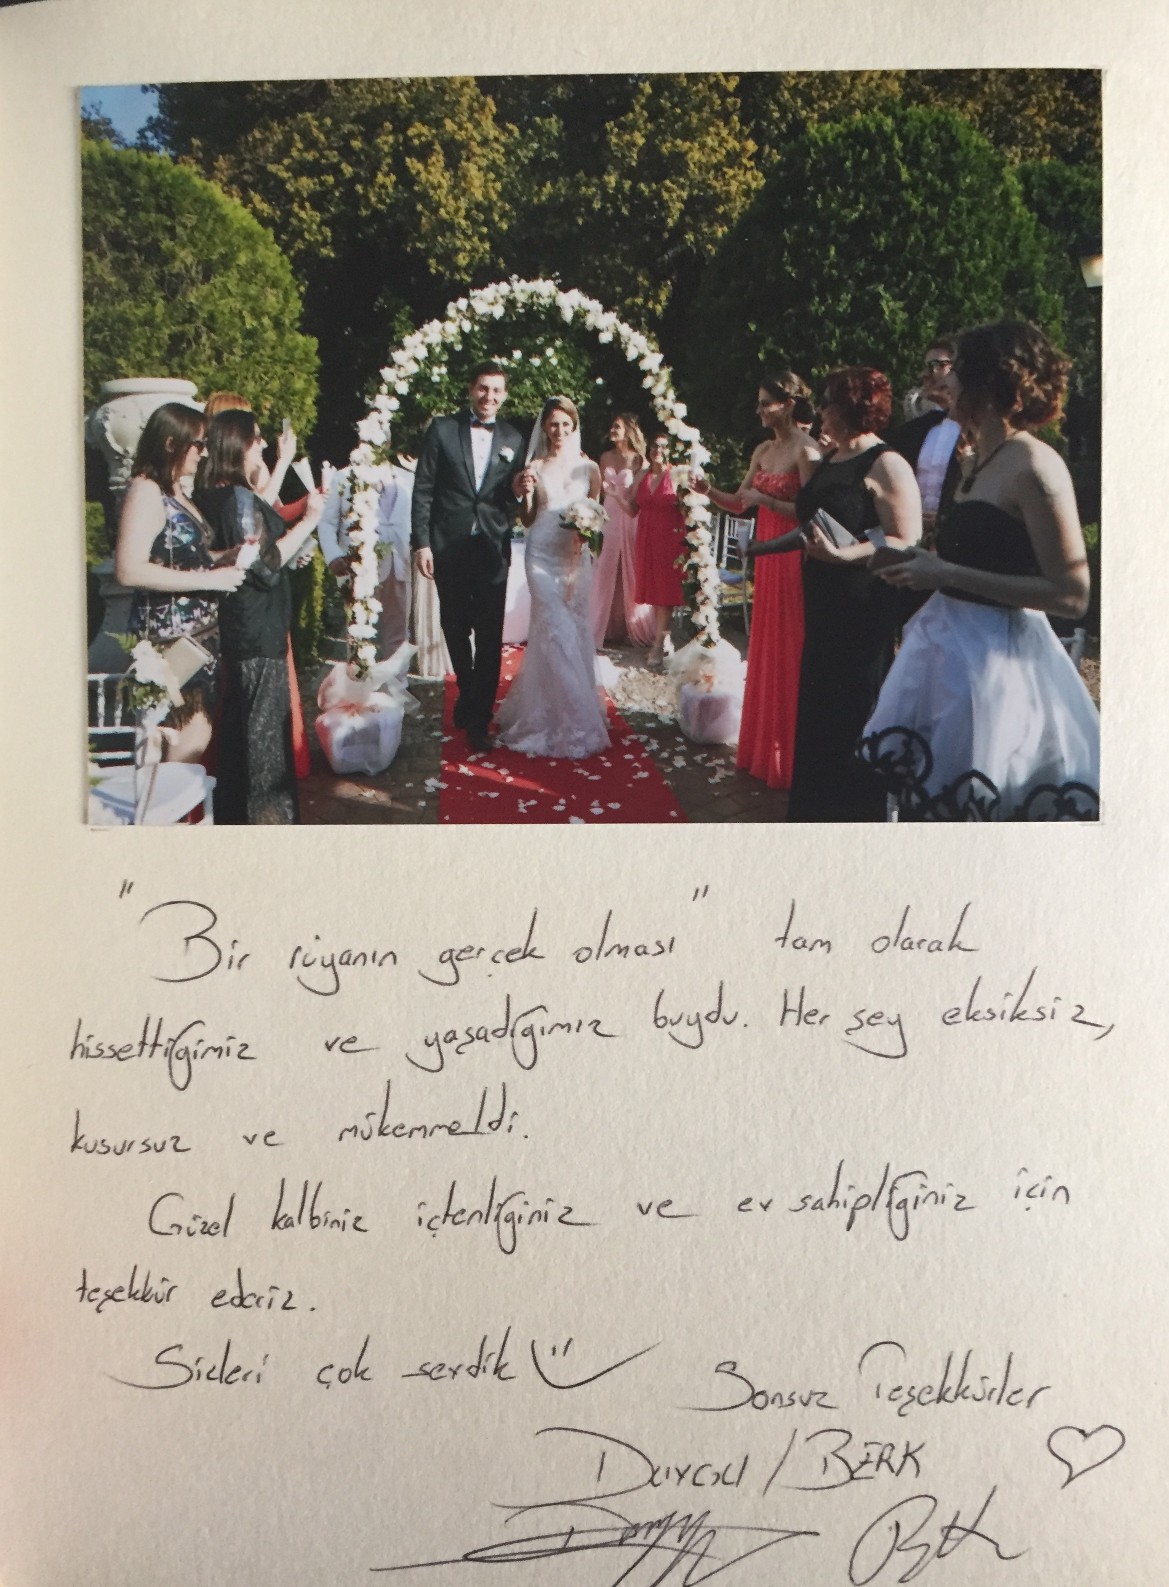 "Bir rüyanın gerçek olması" tam olarak
hissettiğimiz ve yaşadığımız buydu. Her şey eksiksiz,
kusursuz ve mükemmeldi.
Güzel kalbiniz içtenliğiniz ve ev sahipliğiniz için
teşekkür ederiz.
Sizleri çok sevdik
Sonsuz Teşekkürler
/ BERK